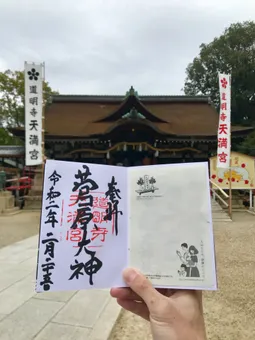 道明寺
天満宮
道明寺
天満宮
奉拝
菅原大神
道明寺
天満宮
令和二年二月二十五日